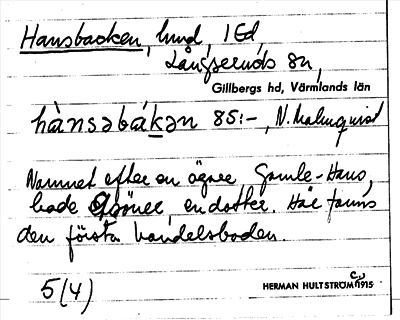 Hansbacken, lund, 1 Ed,
Långseruds sn,
Gillbergs hd, Värmlands län
hànsəbákən 85:-, N. Malmqvist
Namnet efter en ägare Gamle-Hans,
hade söner, en dotter. Här fanns
den första handelsboden.
5(4)
HERMAN HULTSTRÖM 1915